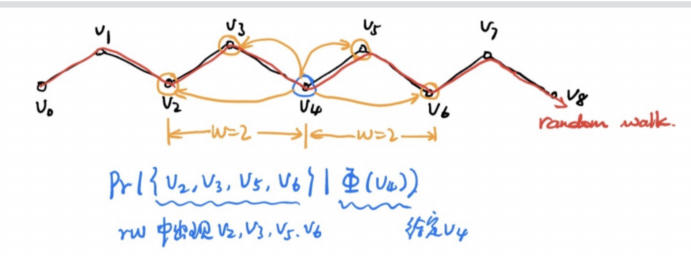 V3 V5 V7
V1
V0 V2 V4 V6 V8
random walk.
w=2 w=2
Pr({V2, V3, V5, V6} | Φ(V4))
rw 中出现 V2, V3, V5. V6 给定V4